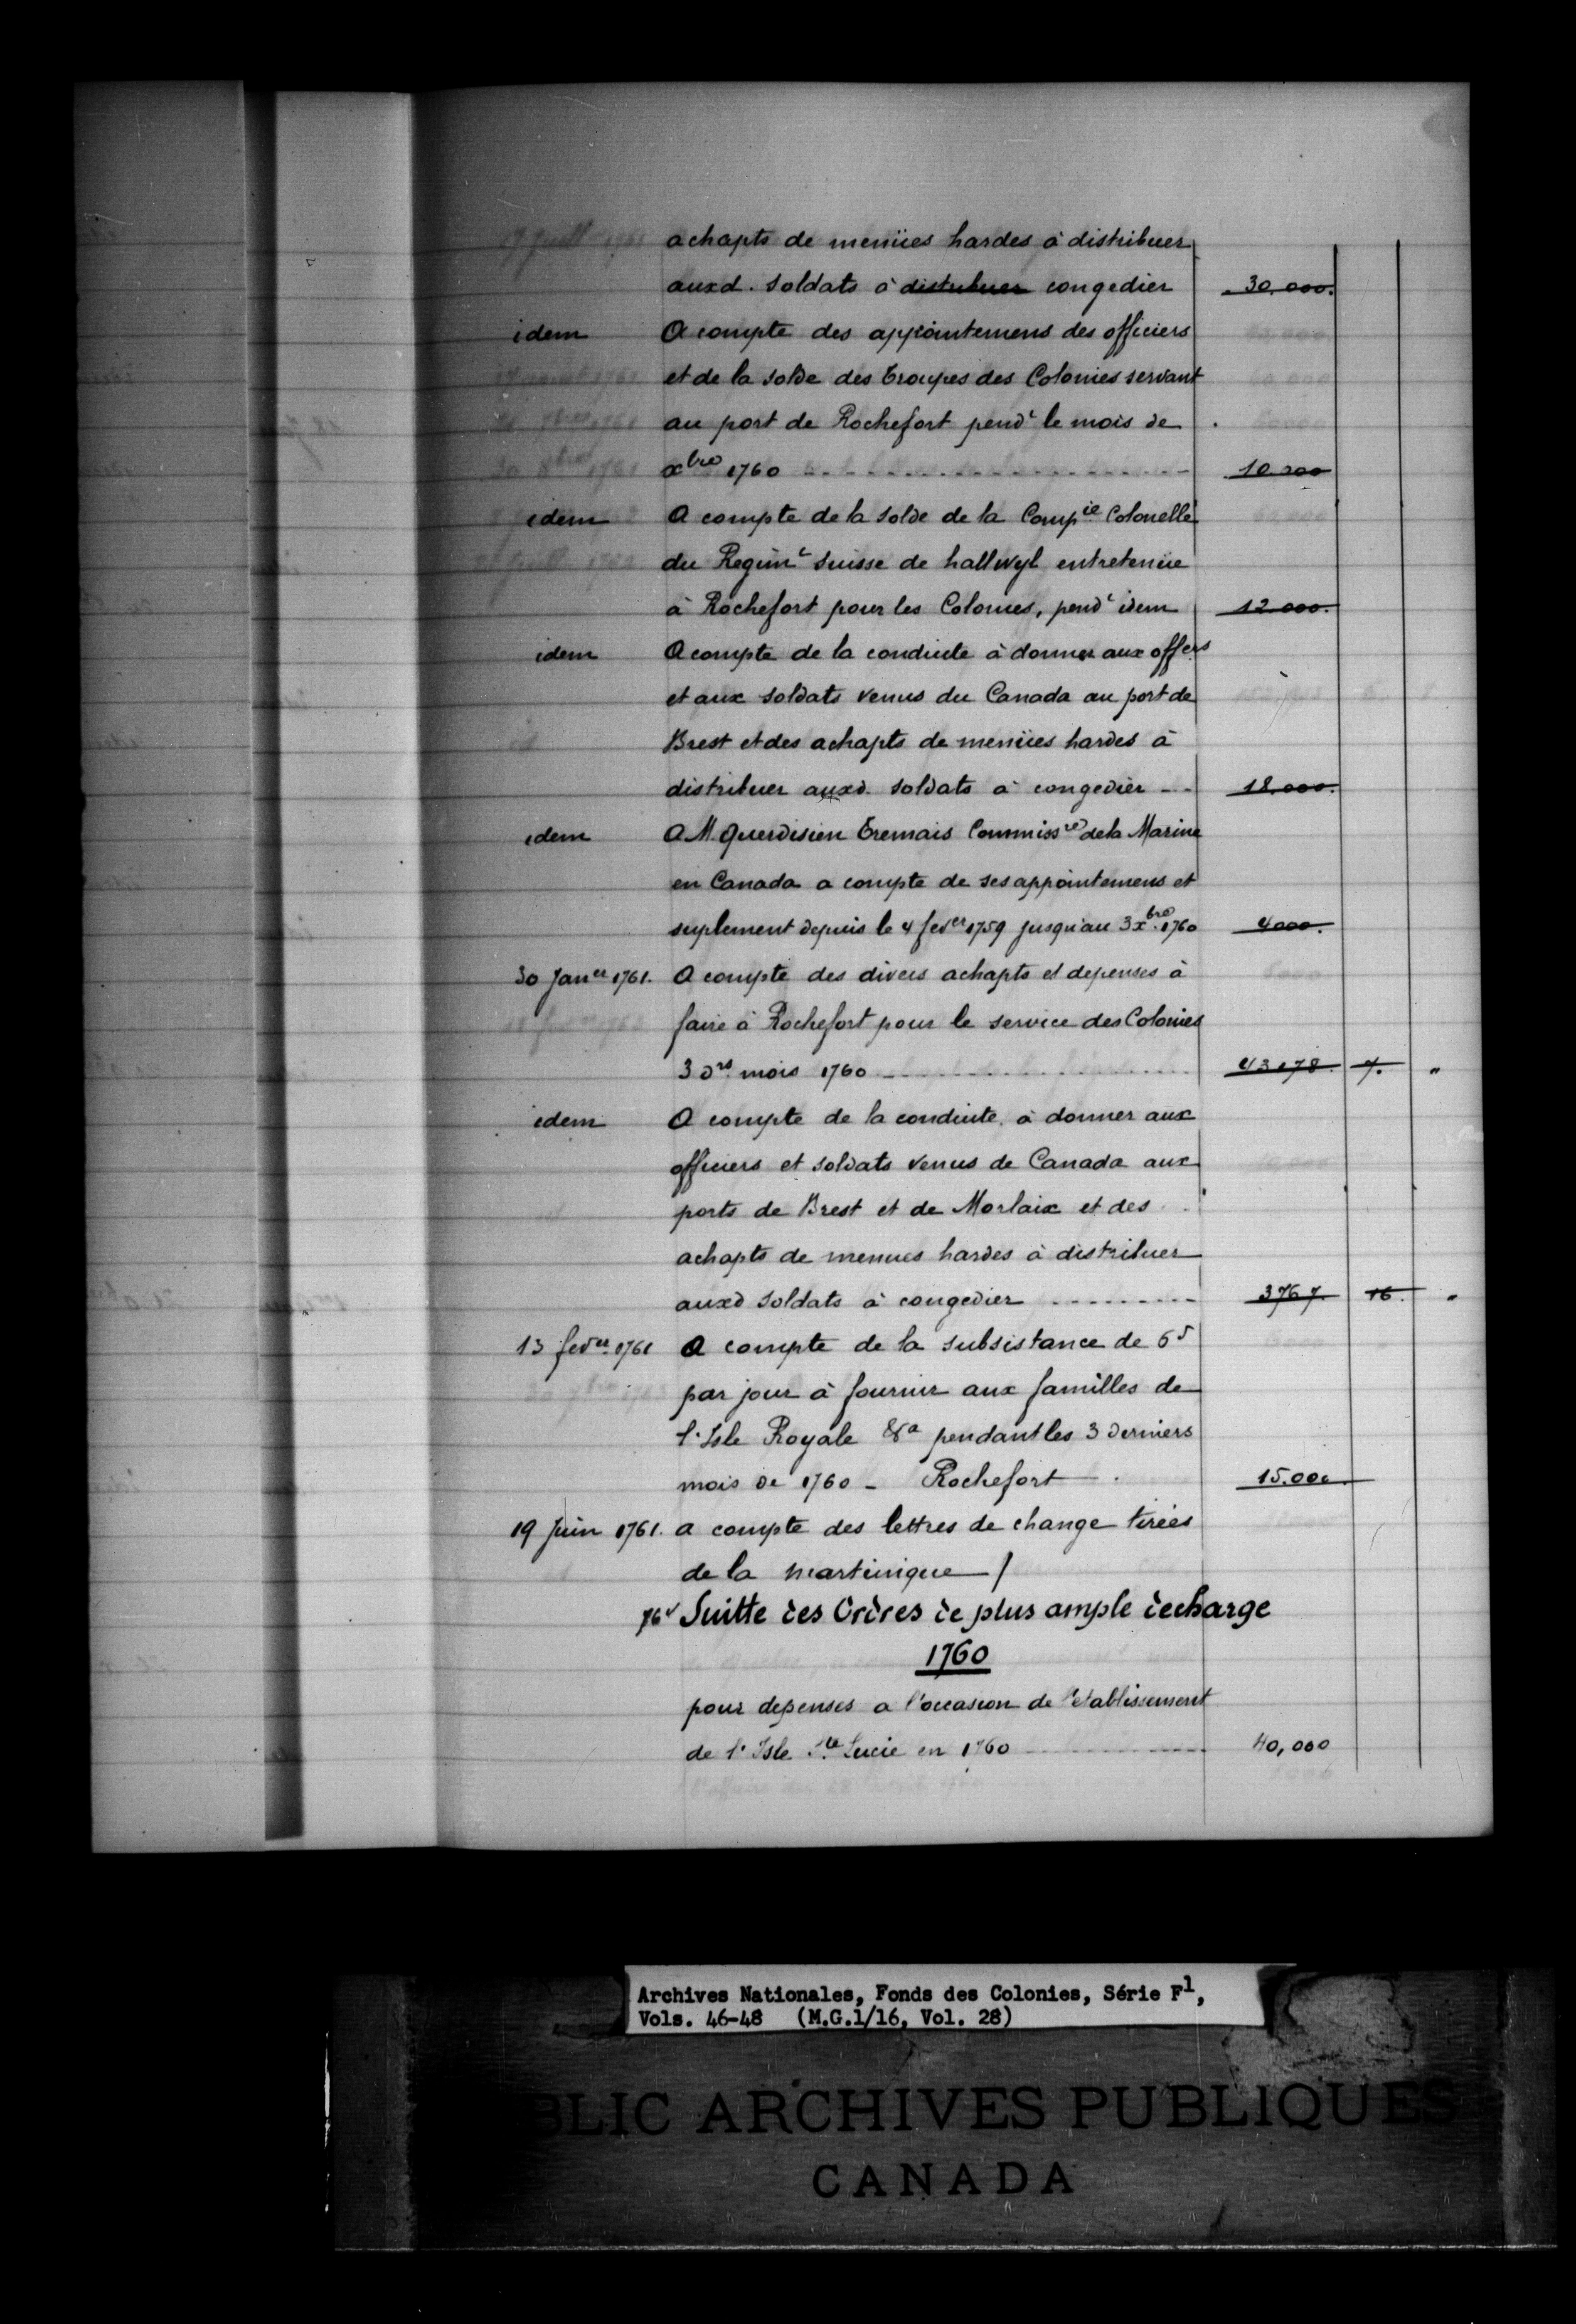 achapts de menües hardes à distribuer
auxd. soldats à ~~distribuer~~ congedier 30.000.
idem A compte des appointemens des officiers
et de la solde des troupes des Colonies servant
au port de Rochefort pend^t le mois de
x^bre 1760 10.200
idem A compte de la solde de la Comp^ie Colonelle
du Regim^t suisse de hallwyl entretenüe
à Rochefort pour les Colonies, pend^t idem 12.000.
idem A compte de la conduite à donner aux off^ers
et aux soldats venus du Canada au port de
Brest et des achapts de menües hardes à
distribuer auxd. soldats à congedier 18.000.
idem A M. Querdisien Tremais Commiss^re de la Marine
en Canada a compte de ses appointemens et
suplement depuis le 4 fev^er 1759 jusqu'au 3 x^bre 1760 4000.
30 Jan^er 1761. A compte des divers achapts et depenses à
faire à Rochefort pour le service des Colonies
3 d^rs mois 1760 43178. 7. "
idem A compte de la conduite à donner aux
officiers et soldats venus de Canada aux
ports de Brest et de Morlaix et des
achapts de menues hardes à distribuer
auxd soldats à congedier 3767. 16. "
13 fev^er 1761 A compte de la subsistance de 6^s
par jour à fournir aux familles de
l'Isle Royale &^a pendant les 3 derniers
mois de 1760 - Rochefort 15.000
19 Juin 1761. a compte des lettres de change tirées
de la martinique /
76^v Suitte des Ordres de plus ample decharge
1760
pour depenses a l'occasion de l'etablissement
de l'Isle S^te Lucie en 1760 40,000
Archives Nationales, Fonds des Colonies, Série F^1,
Vols. 46-48 (M.G.1/16, Vol. 28)
BLIC ARCHIVES PUBLIQUES
CANADA